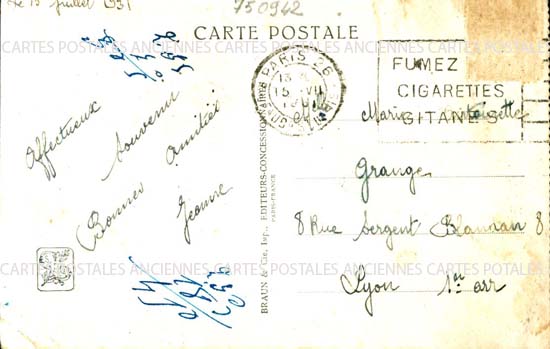 Le 15 juillet 1931
750942
CARTE POSTALE
CARTES POSTALES ANCIENNES CARTES POSTALES ANCIENNES CARTES POSTALES
Affectueux
Souvenir
Bonnes amitiés
Jeanne
BRAUN & Cie, Imp., EDITEURS-CONCESSIONNAIRES
PARIS-FRANCE
PARIS 26
15 VII
FUMEZ
CIGARETTES
GITANES
Marie Antoinette
Grange
8 Rue Sergent Blandan 8
CARTES POSTALES ANCIENNES CARTES POSTALES ANCIENNES CARTES POSTALES
Lyon 1er arr